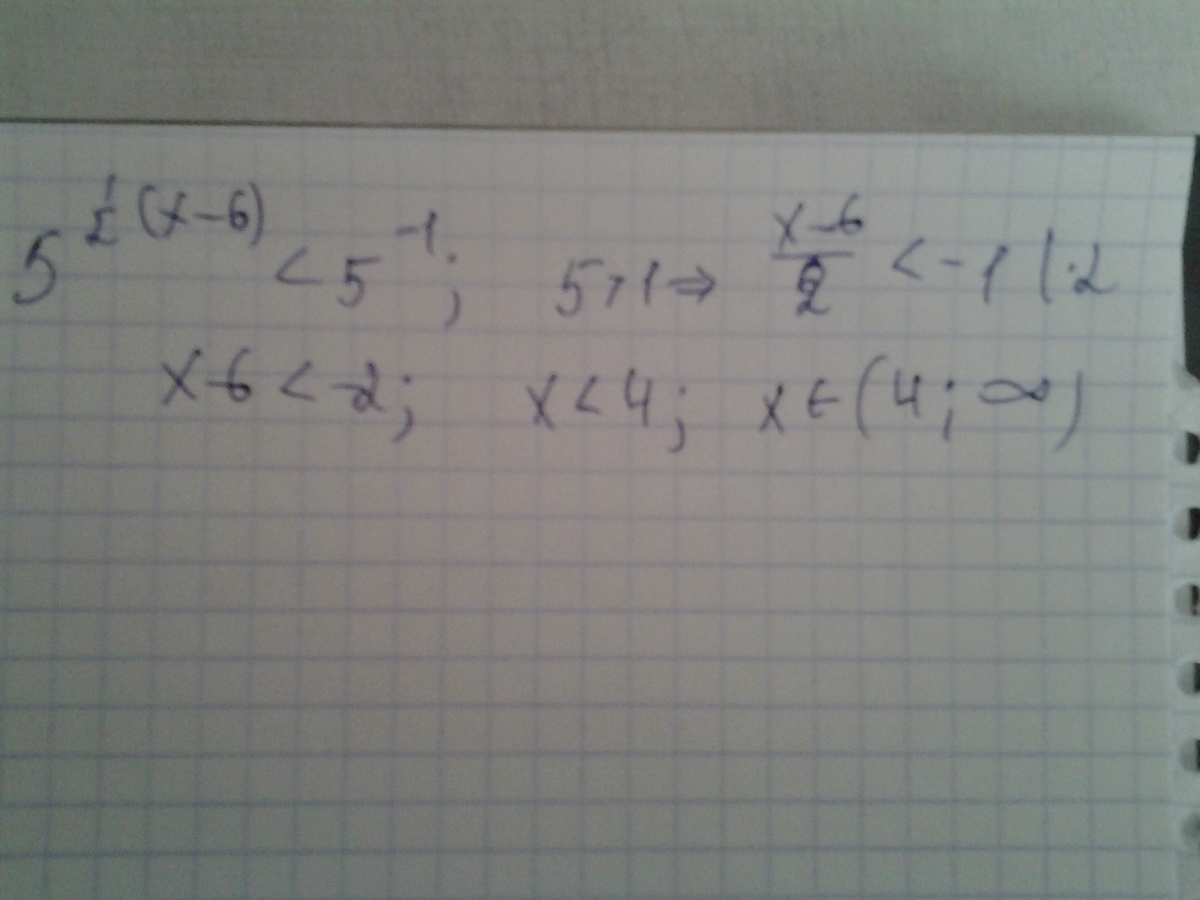 5^{\frac{1}{2}(x-6)} < 5^{-1}; 5>1 ⇒ \frac{x-6}{2} < -1 | ·2
x-6 < -2; x < 4; x ∈ (4; ∞)